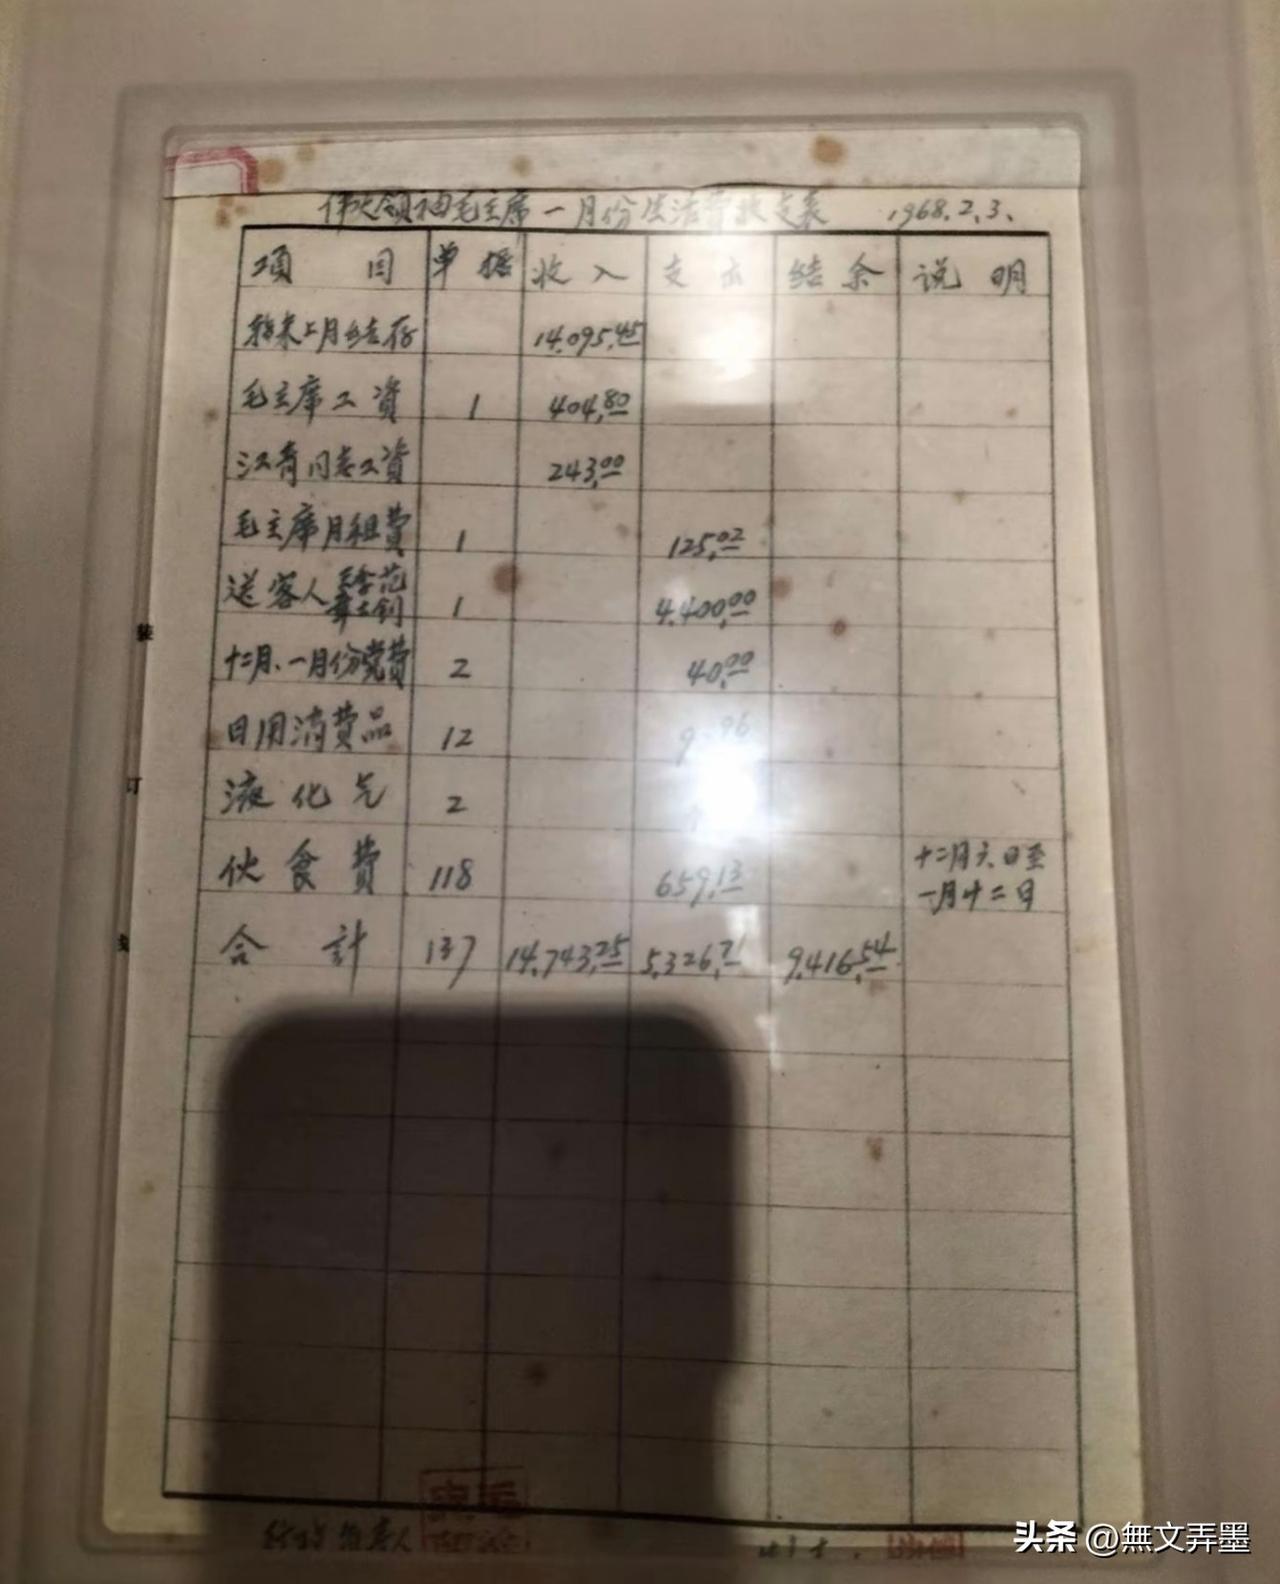 伟大领袖毛主席一月份生活费收支表 1968.2.3.
項目 单据 收入 支出 结余 说明
转来上月结存 14,095.45
毛主席工資 1 404.80
江青同志工資 243.00
毛主席月租費 1 125.02
送客人王季范章士钊 1 4,400.00
十二月、一月份党費 2 40.00
日用消費品 12 96
液化气 2
伙食費 118 659.13 十二月六日至一月廿二日
合計 137 14,743.25 5,326.71 9,416.54
装
订
线
头条 @無文弄墨